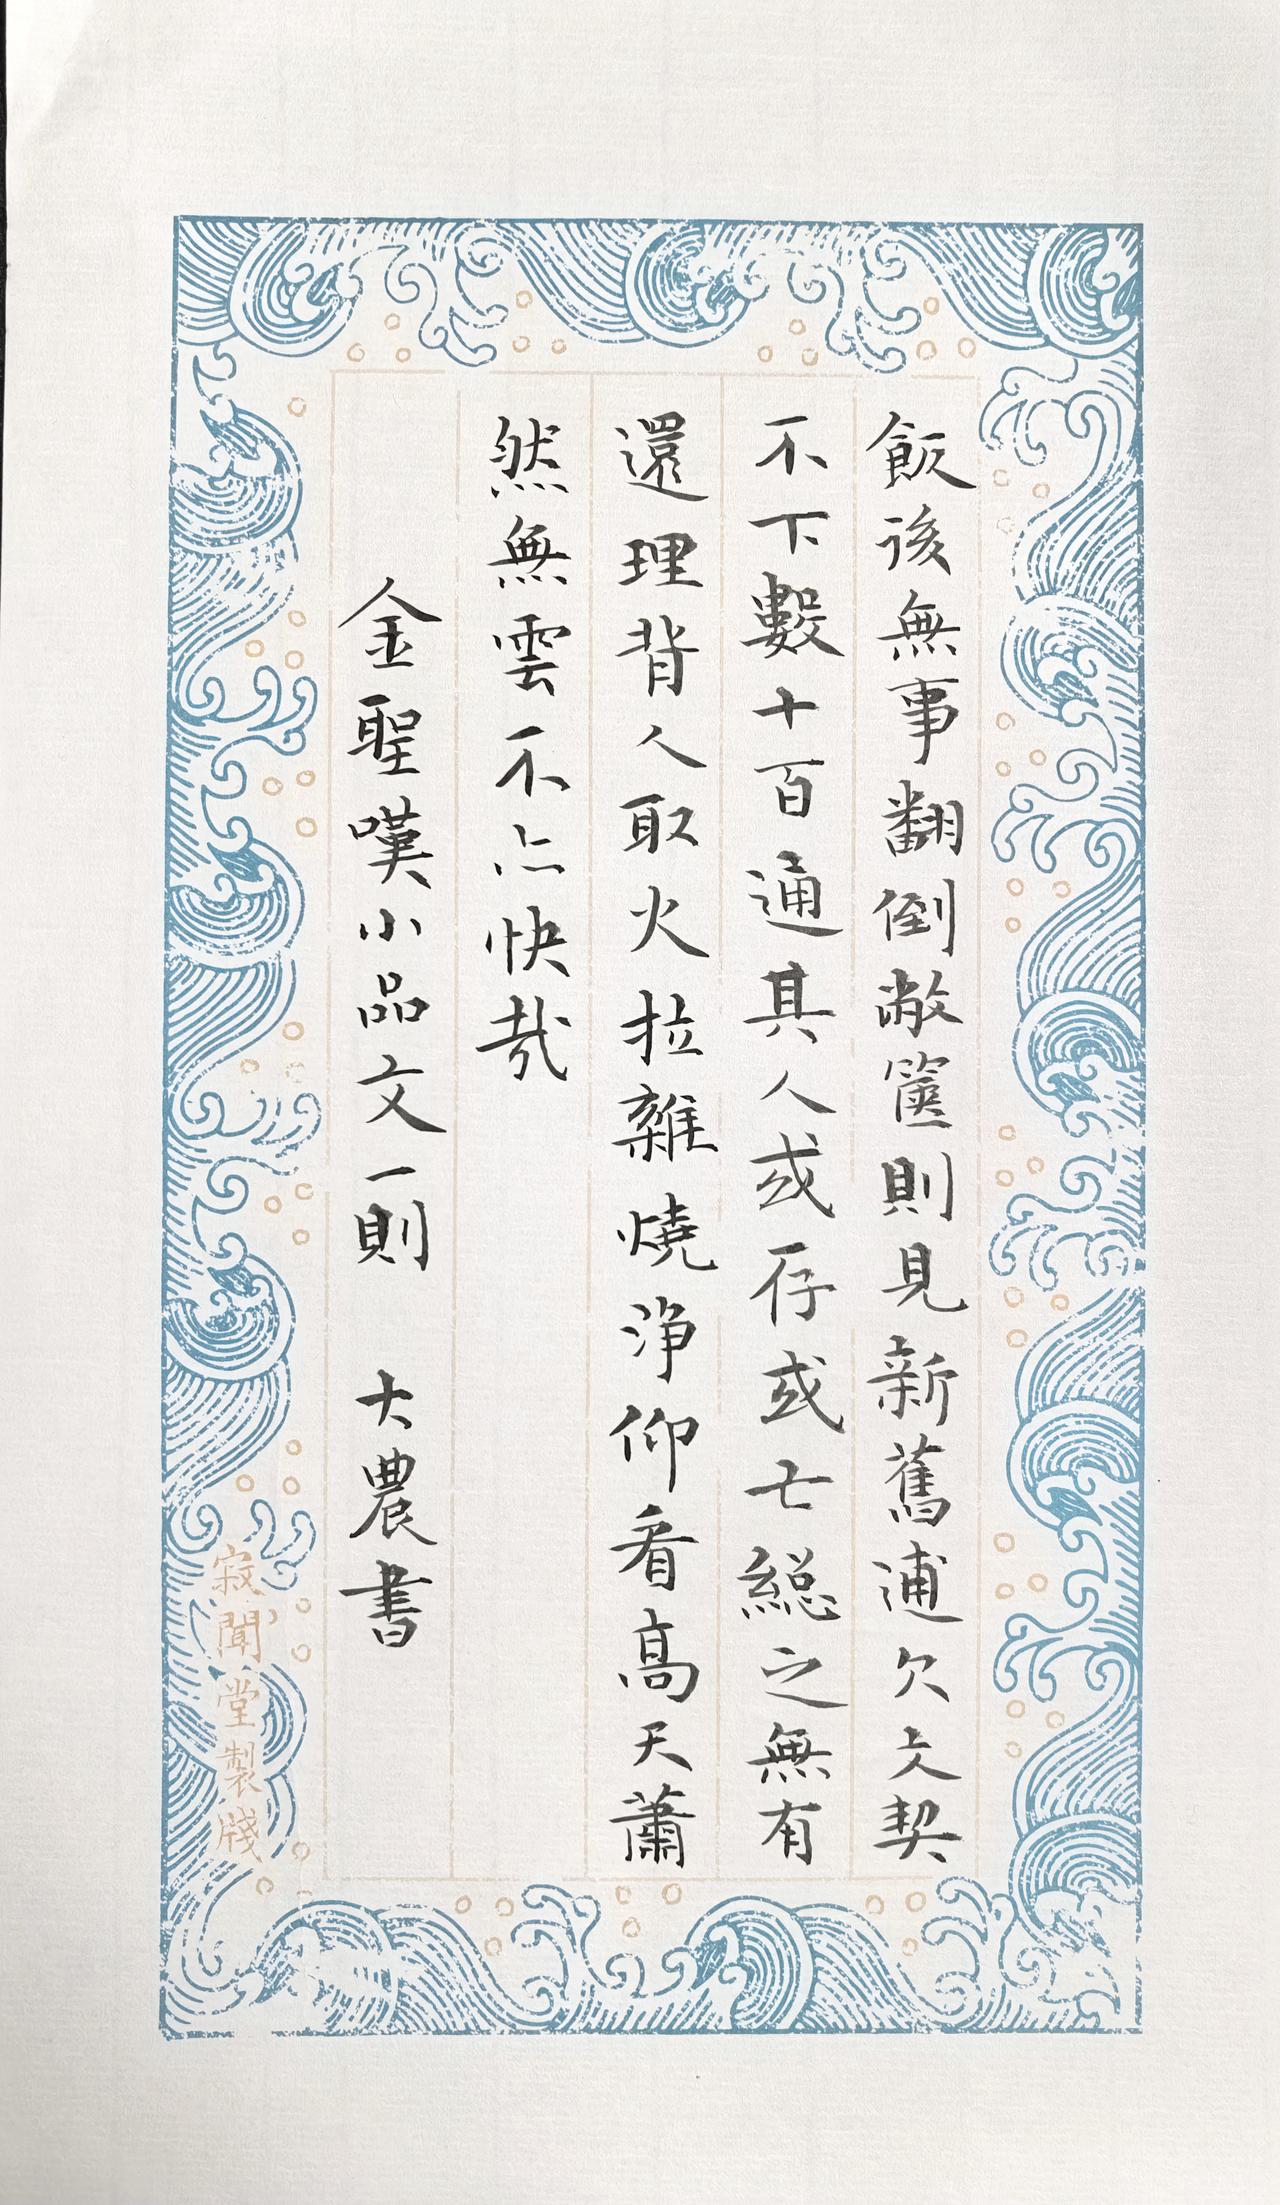 飯後無事翻倒敝篋則見新舊逋欠文契
不下數十百通其人或存或亡總之無有
還理背人取火拉雜燒淨仰看高天蕭
然無雲不亦快哉
金聖嘆小品文一則 大農書
寂聞堂製牋